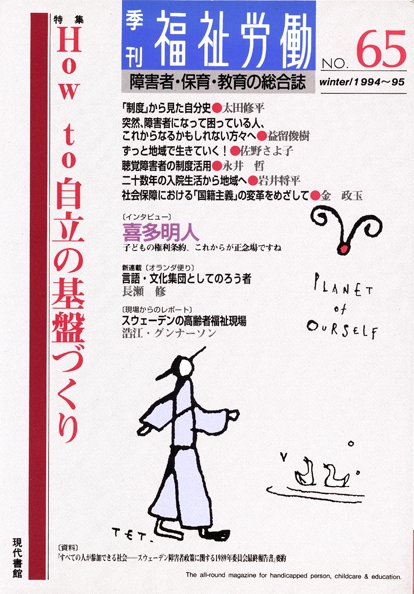 季刊 福祉労働
NO. 65
障害者・保育・教育の総合誌
winter/1994〜95
特集
How to 自立の基盤づくり
「制度」から見た自分史●太田修平
突然、障害者になって困っている人、
これからなるかもしれない方々へ●益留俊樹
ずっと地域で生きていく！●佐野さよ子
聴覚障害者の制度活用●永井 哲
二十数年の入院生活から地域へ●岩井将平
社会保障における「国籍主義」の変革をめざして●金 政玉
〔インタビュー〕
喜多明人
子どもの権利条約、これからが正念場ですね
新連載〔オランダ便り〕
言語・文化集団としてのろう者
長瀬 修
〔現場からのレポート〕
スウェーデンの高齢者福祉現場
浩江・グンナーソン
PLANET
of
OURSELF
TET.
現代書館
〔資料〕
「すべての人が参加できる社会——スウェーデン障害者政策に関する1989年委員会最終報告書」要約
The all-round magazine for handicapped person, childcare & education.